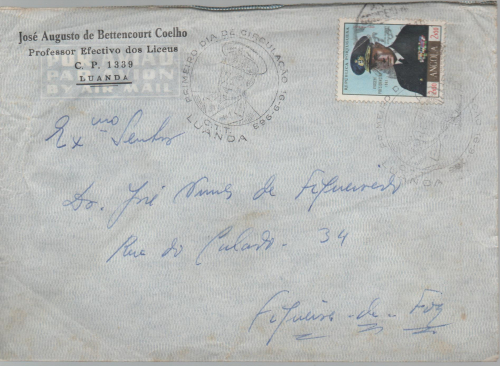 José Augusto de Bettencourt Coelho
Professor Efectivo dos Liceus
C. P. 1339
LUANDA
PAR AVION
BY AIR MAIL
PRIMEIRO DIA DE CIRCULAÇÃO
C.T.T.
LUANDA
REPÚBLICA PORTUGUESA
ANGOLA
Exmo Senhor
Dr. José Nunes de Figueiredo
Rua do Calado - 34
Figueira-da-Foz